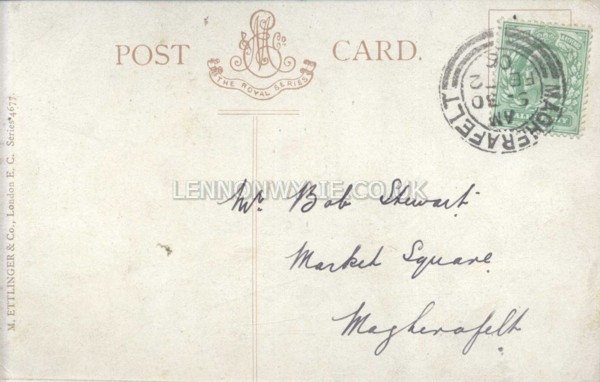 POST CARD.
THE ROYAL SERIES
MAGHERAFELT
5 30 AM
FE 12
05
M. ETTLINGER & Co., London E. C, Series 4677.
LENNONWYLIE.CO.UK
Mr. Bob Stewart
Market Square
Magherafelt